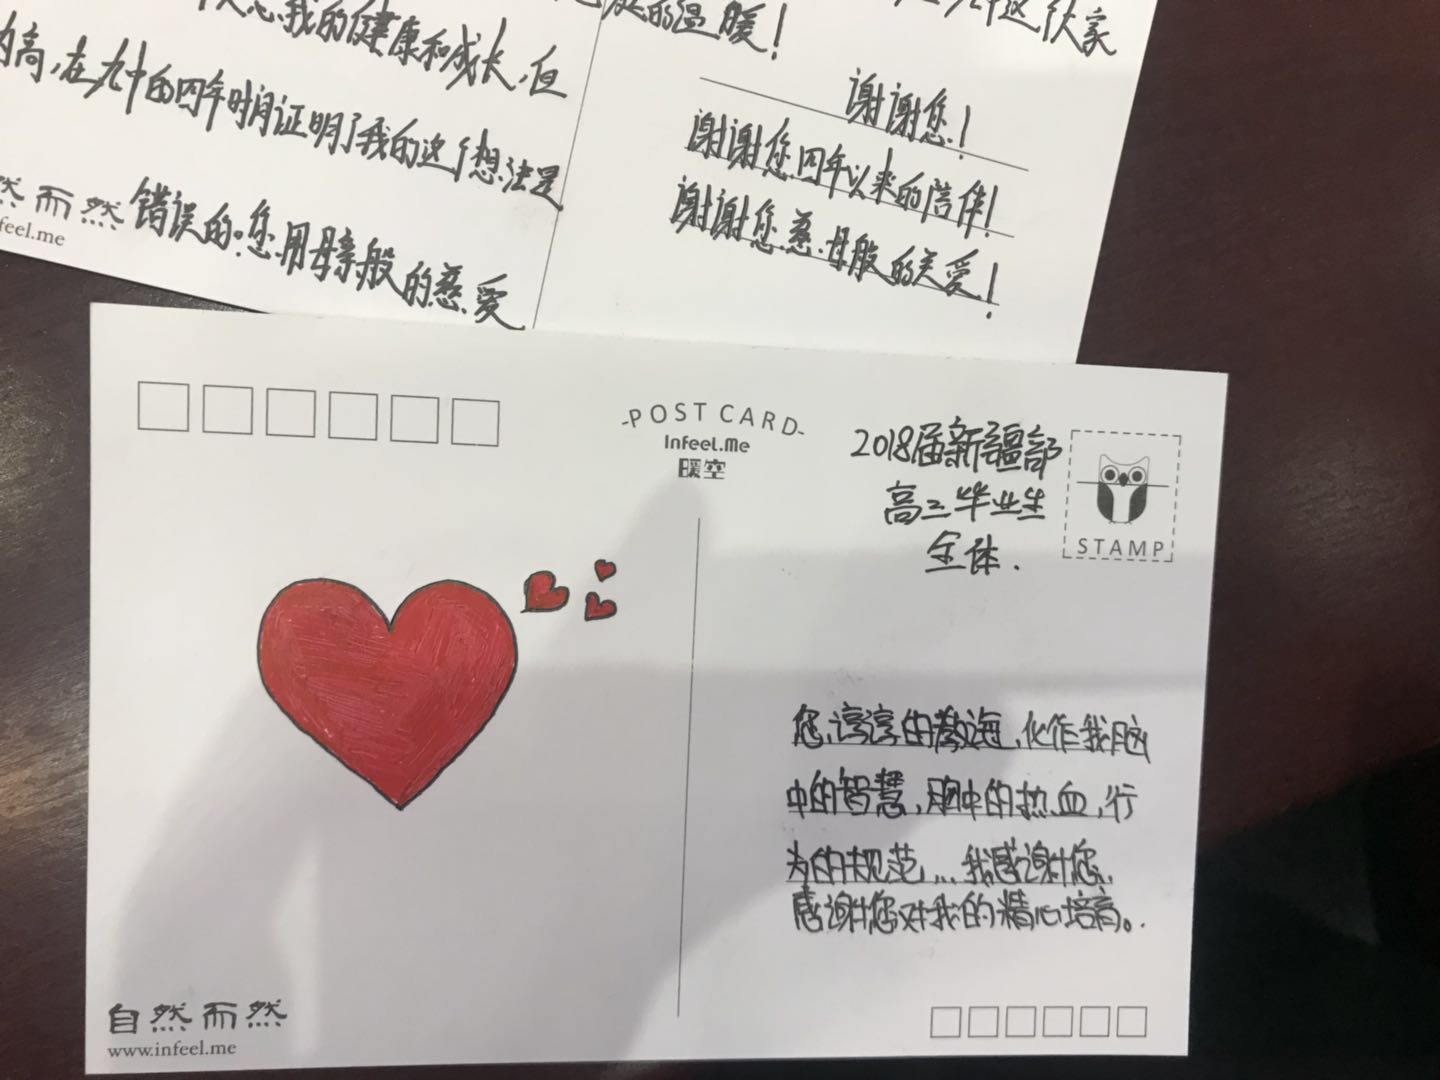 我的健康和成长,但
内高,在九十的四年时间证明了我的这个想法是
错误的。您用母亲般的慈爱
然而然
feel.me
的温暖!
这个大家
谢谢您!
谢谢您四年以来的陪伴!
谢谢您慈母般的关爱!
-POST CARD-
Infeel.Me
暖空
2018届新疆部
高三毕业生
全体.
STAMP
您谆谆的教诲,化作我脑
中的智慧,胸中的热血,行
为的规范,...我感谢您,
感谢您对我的精心培育。.
自然而然
www.infeel.me